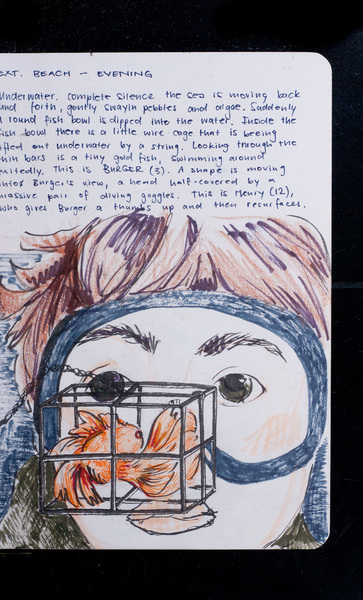 EXT. BEACH - EVENING
Underwater. Complete silence the sea is moving back
and forth, gently swayin pebbles and algae. Suddenly
a round fish bowl is dipped into the water. Inside the
fish bowl there is a little wire cage that is beeing
lifted out underwater by a string. Looking through the
thin bars is a tiny gold fish, swimming around
excitedly. This is BURGER (3). A shape is moving
into Burger's view, a head half-covered by a
massive pair of diving goggles. This is Henry (12),
who gives Burger a thumbs up and then resurfaces.